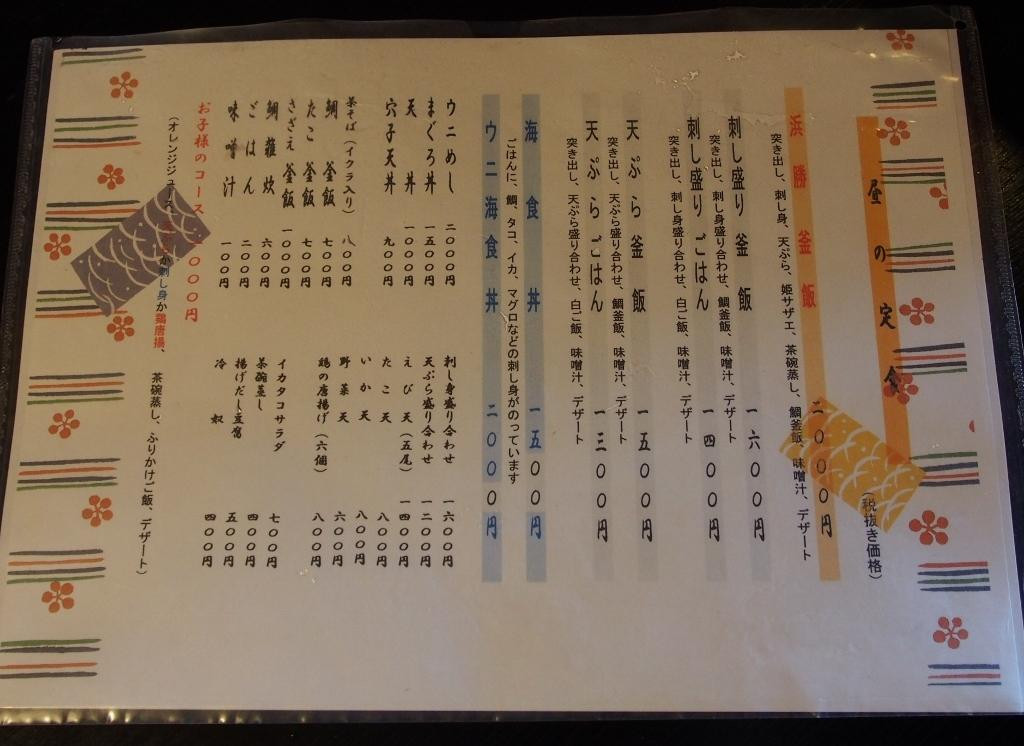 昼の定食
(税抜き価格)
浜勝釜飯 二〇〇〇円
突き出し、刺し身、天ぷら、姫サザエ、茶碗蒸し、鯛釜飯、味噌汁、デザート
刺し盛り釜飯 一六〇〇円
突き出し、刺し身盛り合わせ、鯛釜飯、味噌汁、デザート
刺し盛りごはん 一四〇〇円
突き出し、刺し身盛り合わせ、白ご飯、味噌汁、デザート
天ぷら釜飯 一五〇〇円
突き出し、天ぷら盛り合わせ、鯛釜飯、味噌汁、デザート
天ぷらごはん 一三〇〇円
突き出し、天ぷら盛り合わせ、白ご飯、味噌汁、デザート
海食丼 一五〇〇円
ごはんに、鯛、タコ、イカ、マグロなどの刺し身がのっています
ウニ海食丼 二〇〇〇円
ウニめし 二〇〇〇円
まぐろ丼 一五〇〇円
天丼 一〇〇〇円
穴子天丼 九〇〇円
茶そば(イクラ入り) 八〇〇円
鯛釜飯 七〇〇円
たこ釜飯 七〇〇円
さざえ釜飯 一〇〇〇円
鯛雑炊 六〇〇円
ごはん 二〇〇円
味噌汁 一〇〇円
刺し身盛り合わせ 一六〇〇円
天ぷら盛り合わせ 一二〇〇円
えび天(五尾) 一四〇〇円
たこ天 一八〇〇円
いか天 八〇〇円
野菜天 六〇〇円
鶏の唐揚げ(六個) 八〇〇円
イカタコサラダ 七〇〇円
茶碗蒸し 四〇〇円
揚げだし豆腐 五〇〇円
冷奴 四〇〇円
お子様のコース 〇〇円
(オレンジジュース、か刺し身か鶏唐揚、茶碗蒸し、ふりかけご飯、デザート)